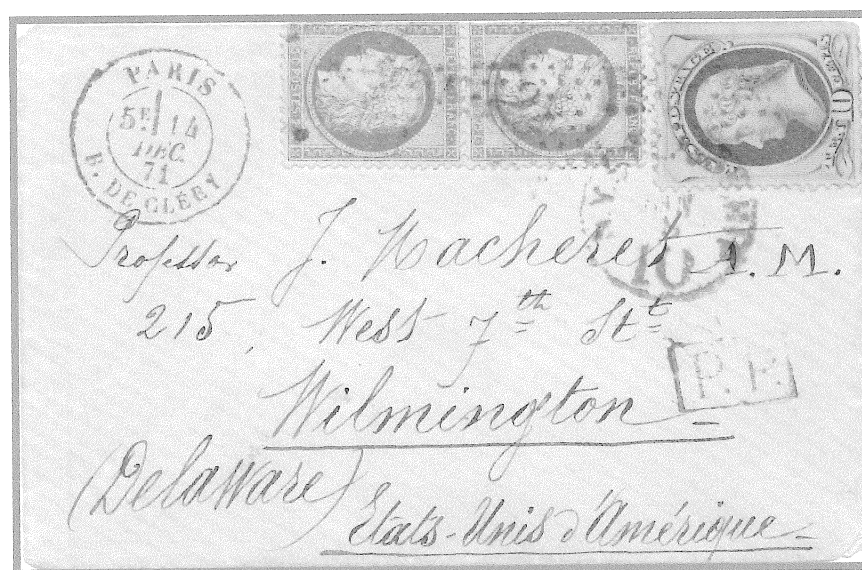 PARIS
5E 14
DEC.
71
R. DE CLÉRY
10
Professor J. Macheret A. M.
215, West 7th Stt
Wilmington
P.P.
(Delaware)
Etats-Unis d'Amérique